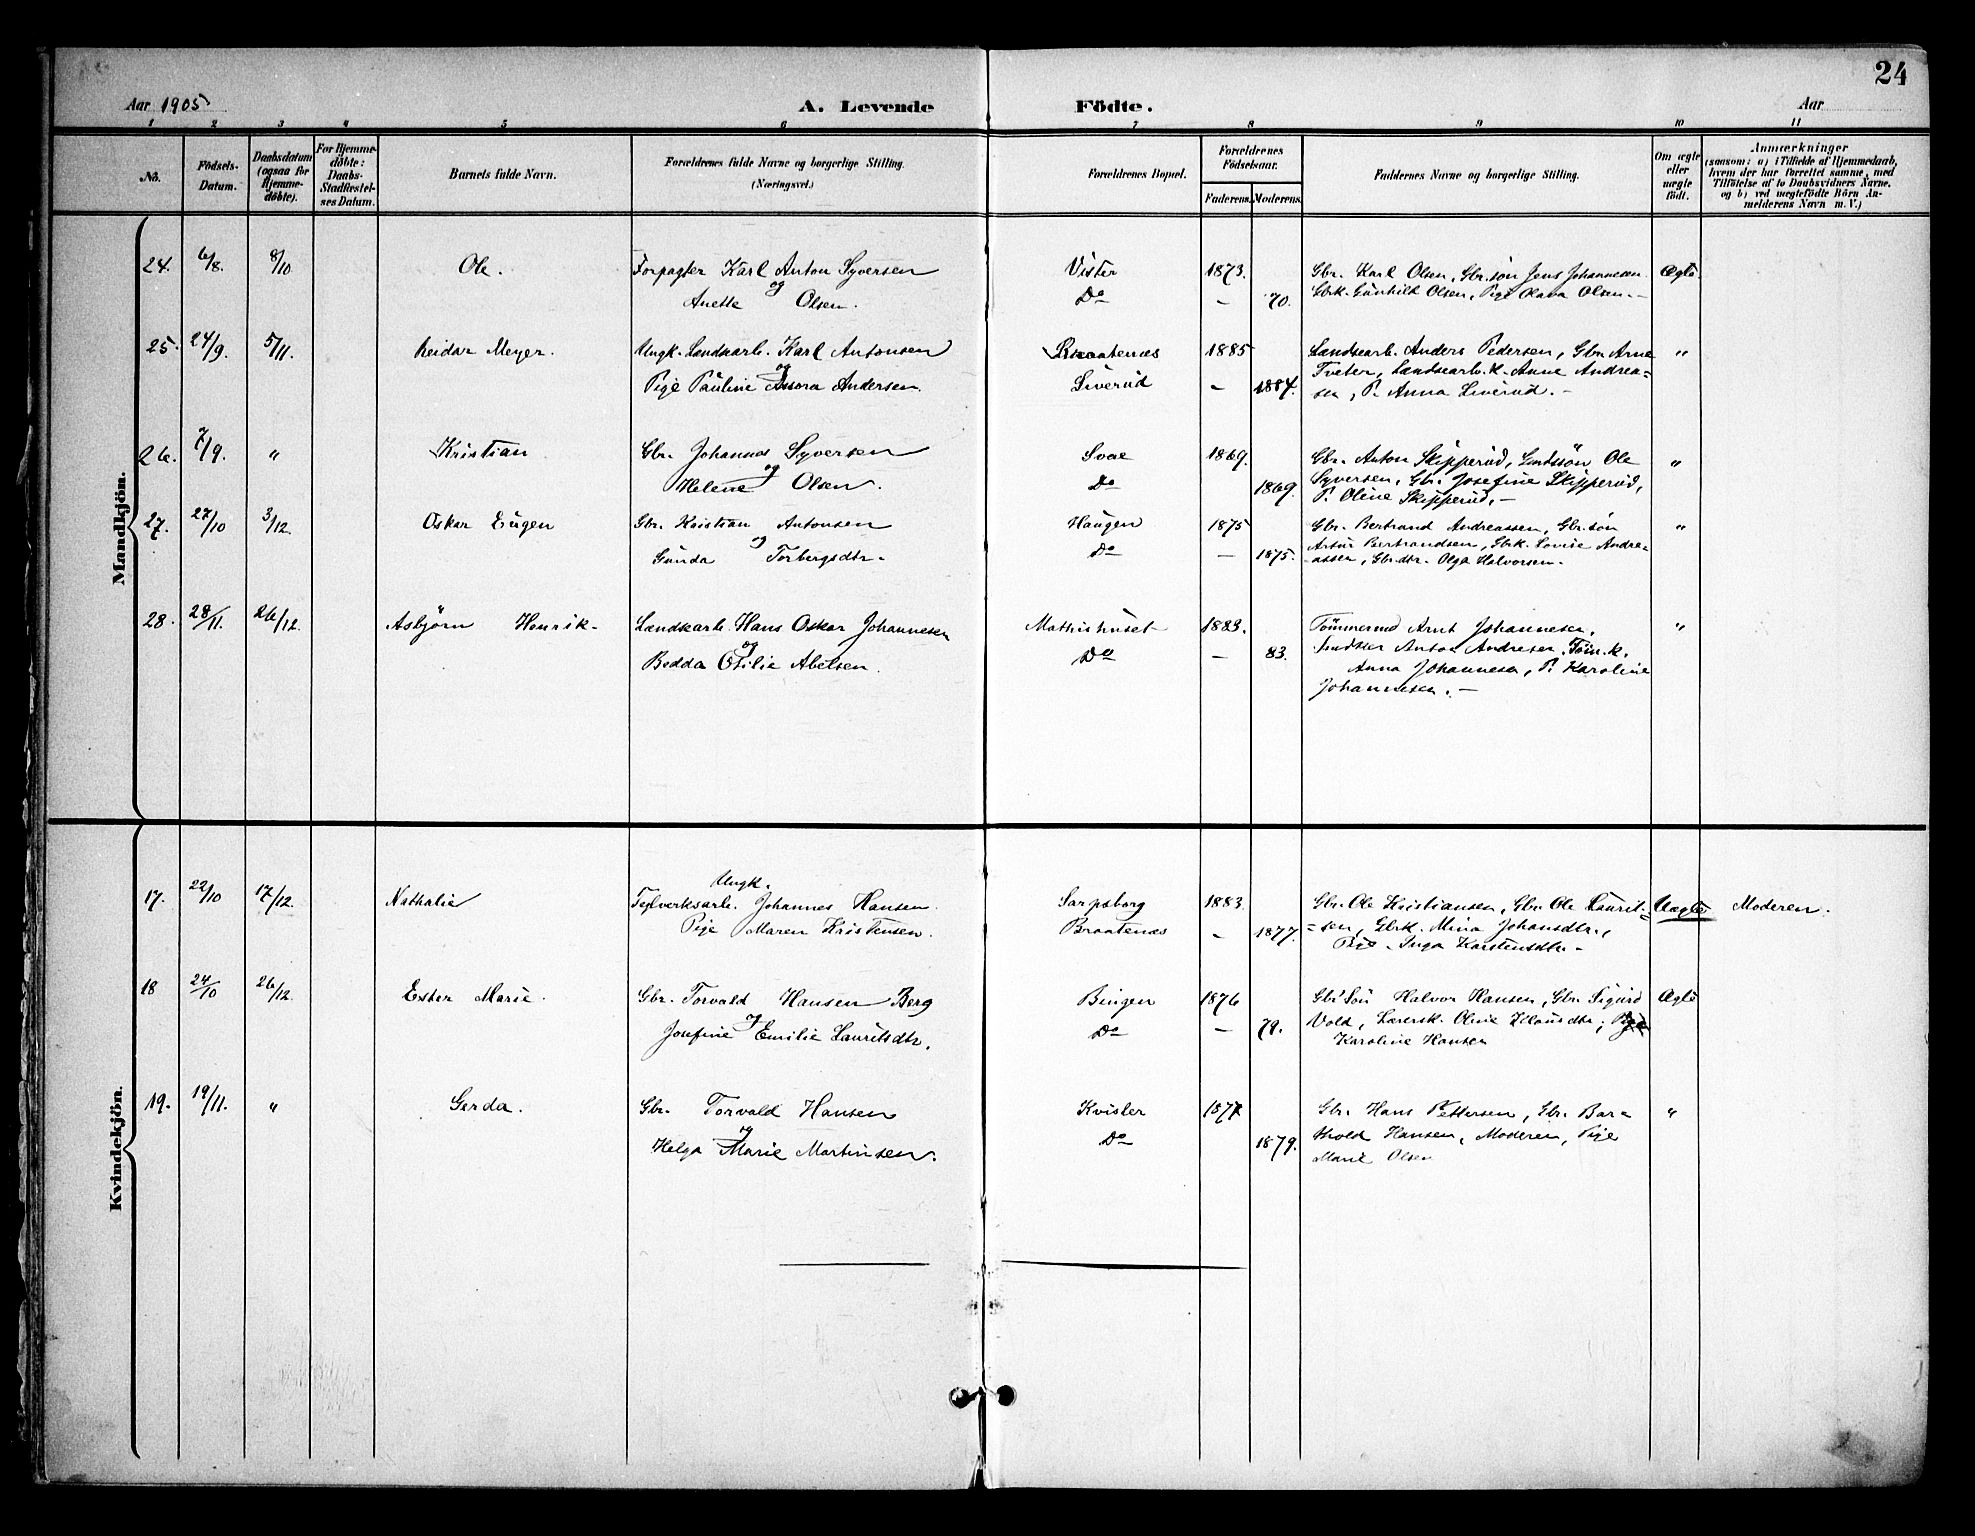 24
Aar 1905
A. Levende Födte.
Aar
1 2 3 4 5 6 7 8 9 10 11
No.
Födsels-Datum.
Daabsdatum (ogsaa for Hjemme-döbte).
For Hjemme-döbte: Daabs-Stadfæstel-ses Datum.
Barnets fulde Navn.
Forældrenes fulde Navne og borgerlige Stilling.
(Næringsvei.)
Forældrenes Bopæl.
Forældrenes Födselsaar.
Faderens. Moderens.
Faddernes Navne og borgerlige Stilling.
Om ægte eller uægte födt.
Anmærkninger
(saasom: a) i Tilfælde af Hjemmedaab,
hvem der har forrettet samme, med
Tilföielse af to Daabsvidners Navne,
og b) ved uægtefödte Börn An-
melderens Navn m. V.)
Mandkjön.
24. 6/8. 8/10 Ole. Forpagter Karl Anton Syversen Vister 1873. Gbr. Karl Olsen, Gbr.sön Jens Johannesen Ægte
og
Anette Olsen. Do – 70. Gbrk. Gunhild Olsen, Pige Olava Olsen. –
25. 24/9. 5/11. Reidar Meyer. Ungk. Landsarb. Karl Antonsen Braatenæs 1885 Landsarb. Anders Pedersen, Gbr. Arne "
og
Pige Pauline Aurora Andersen. Liverud – 1884. Tveter, Landsarb.k. Anne Andrea=
sen, P. Anna Liverud. –
26. 7/9. " Kristian Gbr. Johannes Syversen Svae 1869. Gbr. Anton Skipperud, Ole "
og
Helene Olsen. Do 1869. Syversen, Gbr. Josefine Skipperud,
P. Oline Skipperud. –
27. 27/10 3/12. Oskar Eugen Gbr. Kristian Antonsen Haugen 1875 Gbr. Bertrand Andreassen, Gbr.sön "
og
Gunda Torbergsdtr. Do – 1875. Artur Bertrandsen, Gbrk. Lovise Andre-
assen, Gbr.dtr. Olga Halvorsen. –
28. 28/11. 26/12. Asbjörn Henrik. Landsarb. Hans Oskar Johannesen Mathishuset 1883. Tömmermd Arnt Johannesen, "
og
Bedda Otilie Abelsen. Do – 83. Anton Andresen, Töm.k.
Anna Johannesen, P. Karoline
Johannesen. –
Kvindekjön.
Ungk.
17. 22/10 17/12. Nathalie Teglverksarb. Johannes Hansen. Sarpsborg 1883. Gbr. Ole Kristiansen, Gbr. Ole Laurit= Uægte Moderen.
Pige Maren Kristensen. Braatenæs – 1877. =sen, Gbrk. Mina Johansdtr.,
Pige Inga Karstensdtr. –
18 24/10 26/12. Ester Marie. Gbr. Torvald Hansen Berg Bingen 1876 Gbr.Sön Halvor Hansen, Gbr. Sigurd Ægte
og
Josefine Emilie Lauritsdtr. Do – 79. Vold, Lærersk. Oline Klausdtr., Pige
Karoline Hansen
19. 19/11. " Gerda. Gbr. Torvald Hansen Kvister 1877 Gbr. Hans Pettersen, Gbr. Bar= "
og
Helga Marie Martinsen. Do 1879. thold Hansen, Moderen, Pige
Marie Olsen